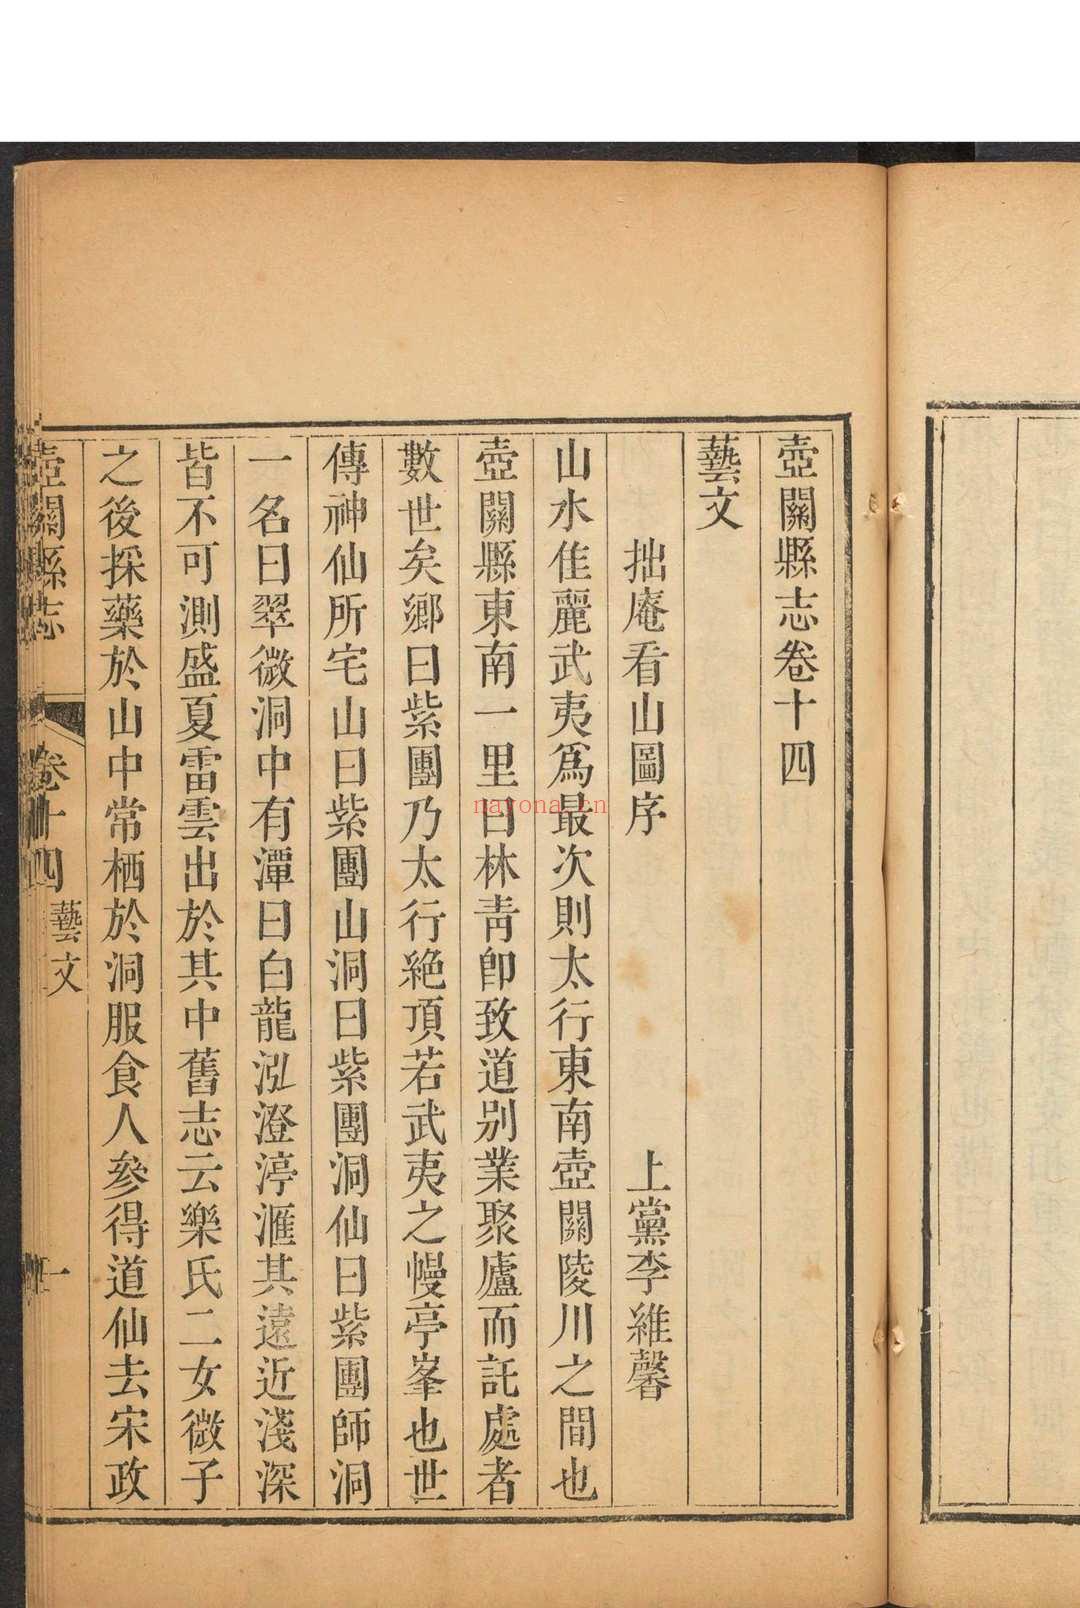 壺關縣志卷十四
藝文
拙庵看山圖序　上黨李維馨
山水佳麗武夷爲最次則太行東南壺關陵川之間也
壺關縣東南一里曰林青卽致道别業聚廬而託處者
數世矣鄉曰紫團乃太行絶頂若武夷之幔亭峯也世
傳神仙所宅山曰紫團山洞曰紫團洞仙曰紫團師洞
一名曰翠微洞中有潭曰白龍泓澄渟滙其遠近淺深
皆不可測盛夏雷雲出於其中舊志云樂氏二女微子
之後採藥於山中常栖於洞服食人參得道仙去宋政
壺關縣志
卷十四
藝文
一
nayona.cn